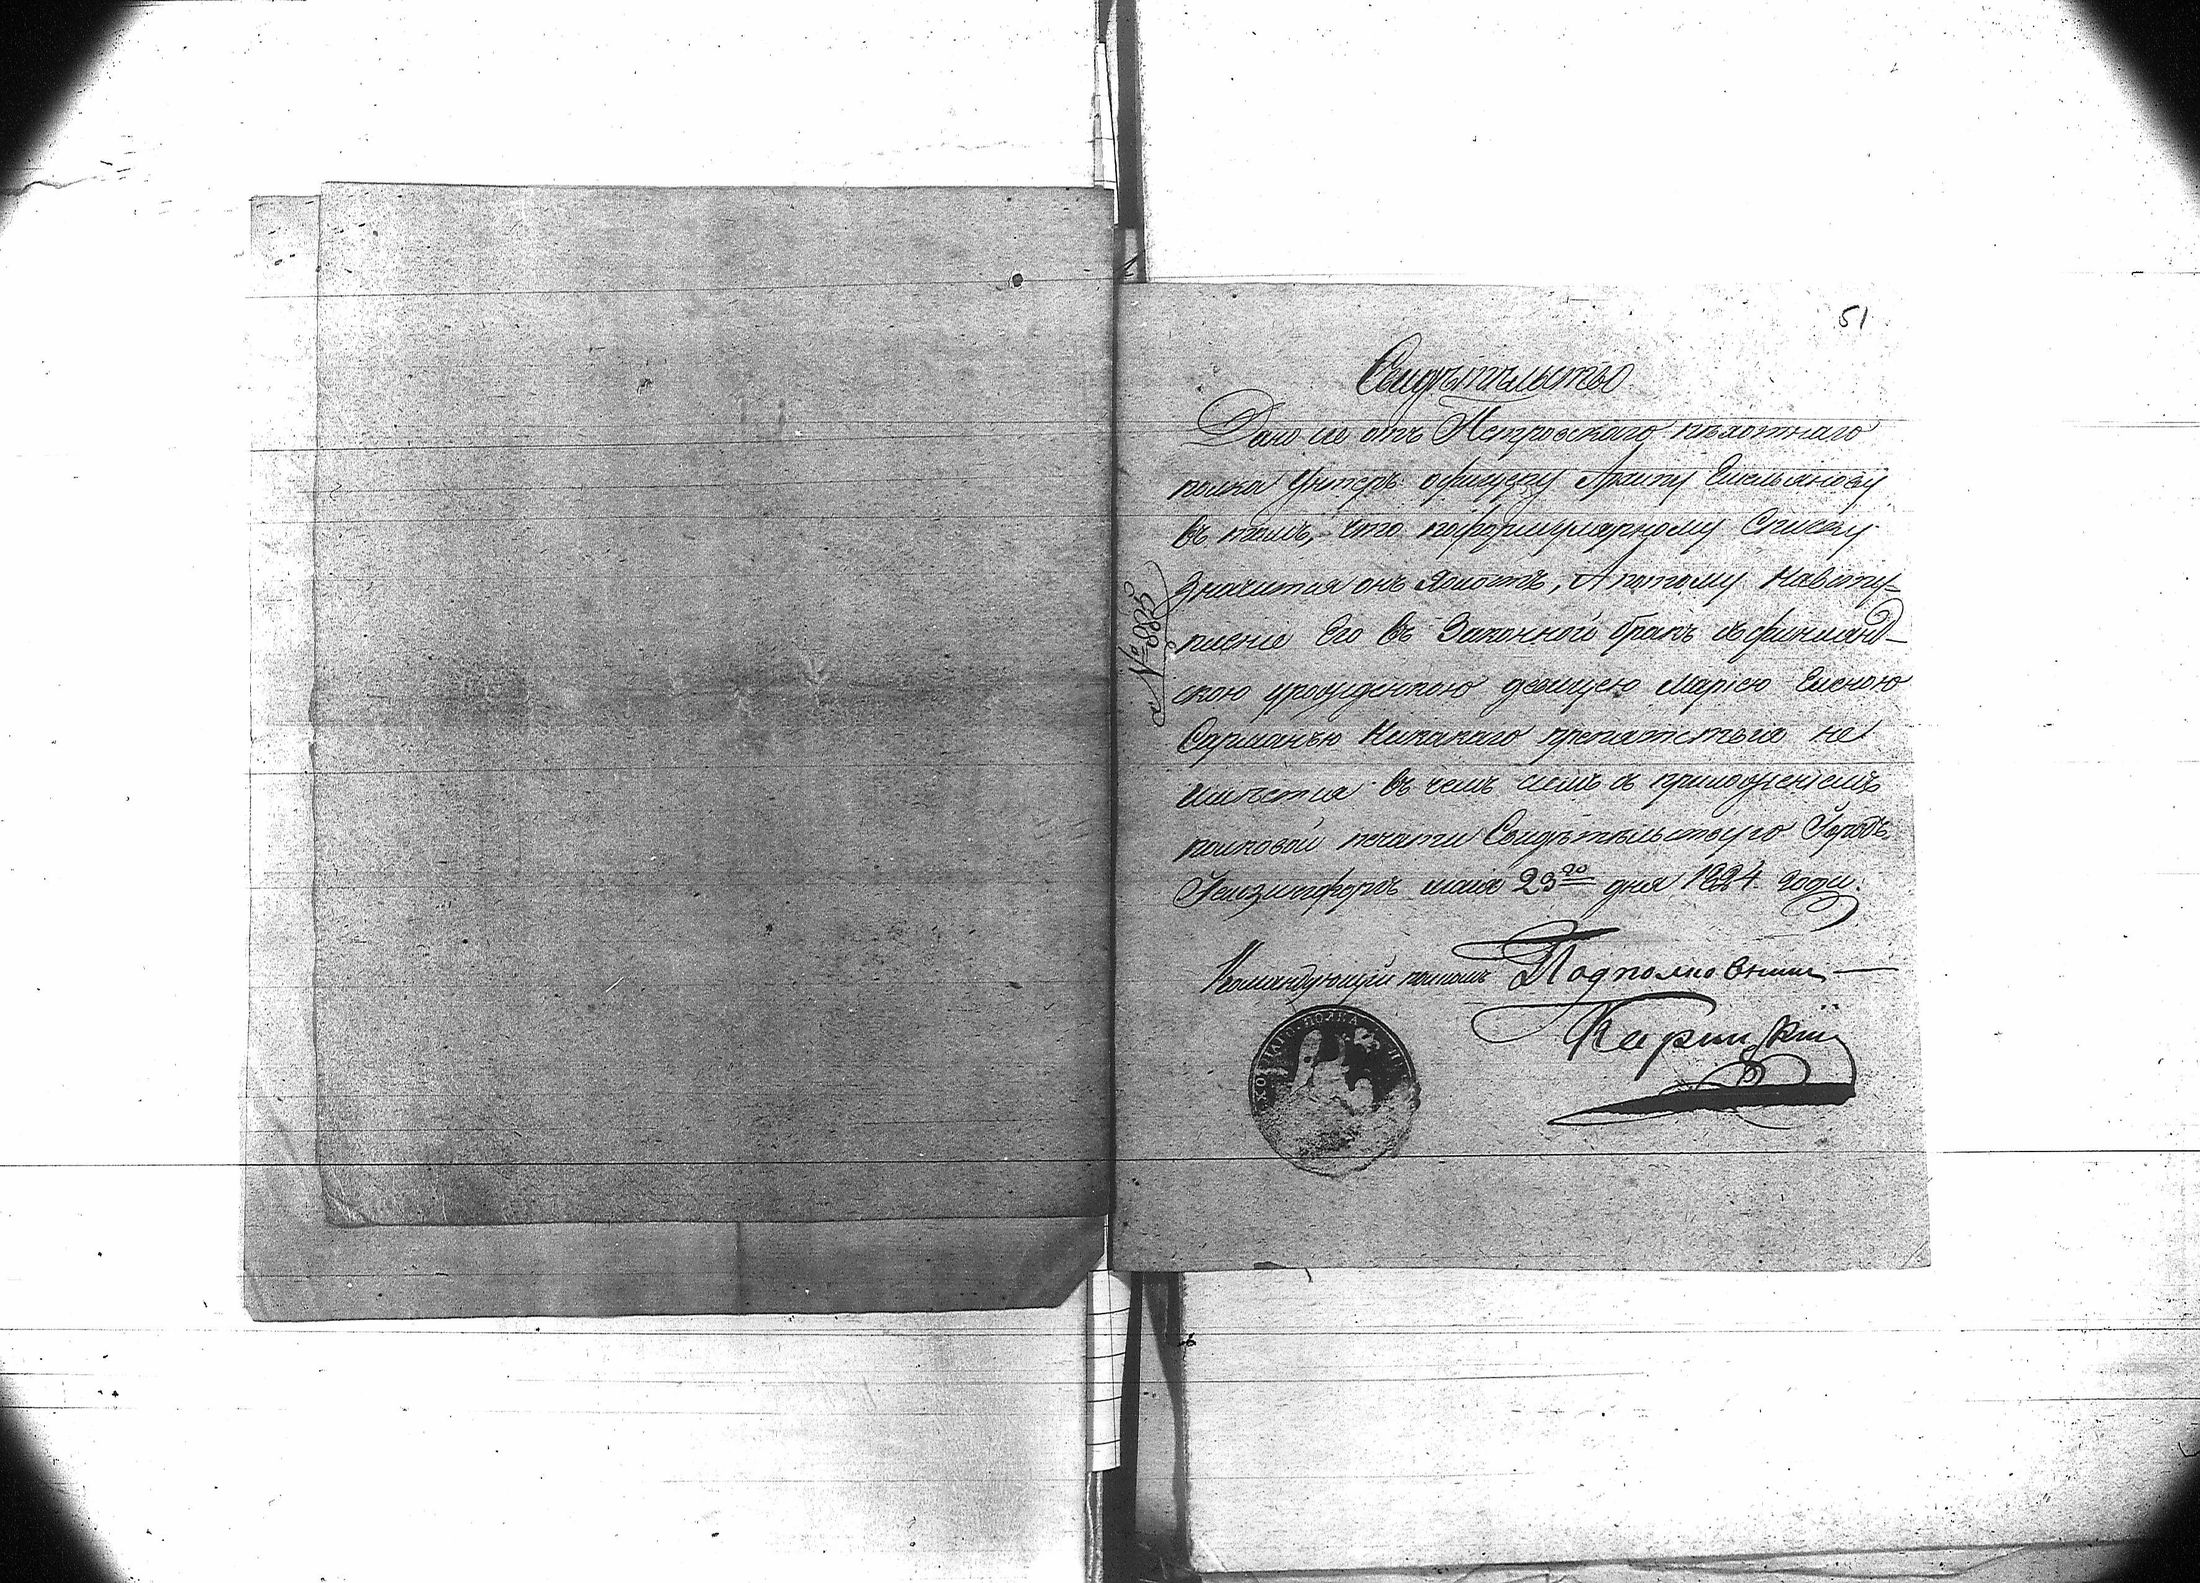 51
Свидѣтельство
Дано сіе отъ Петровскаго пѣхотнаго
полка Унтеръ офицеру Архипу Емельянову
въ томъ, что поформулярному Списку
значится онъ Холостъ, А потому навсту-
пленіе Его въ Законной бракъ съ финлянд-
скою уроженкою девицею Маріею Еленою
Никакаго препятствія не
имѣется въ чемъ симъ съ приложеніемъ
полковой печати Свидѣтельствую Городъ
Гельзингфорсъ маія 23го дня 1824. года.
№ 885
Командующій полкомъ Подполковникъ
ПОЛКА